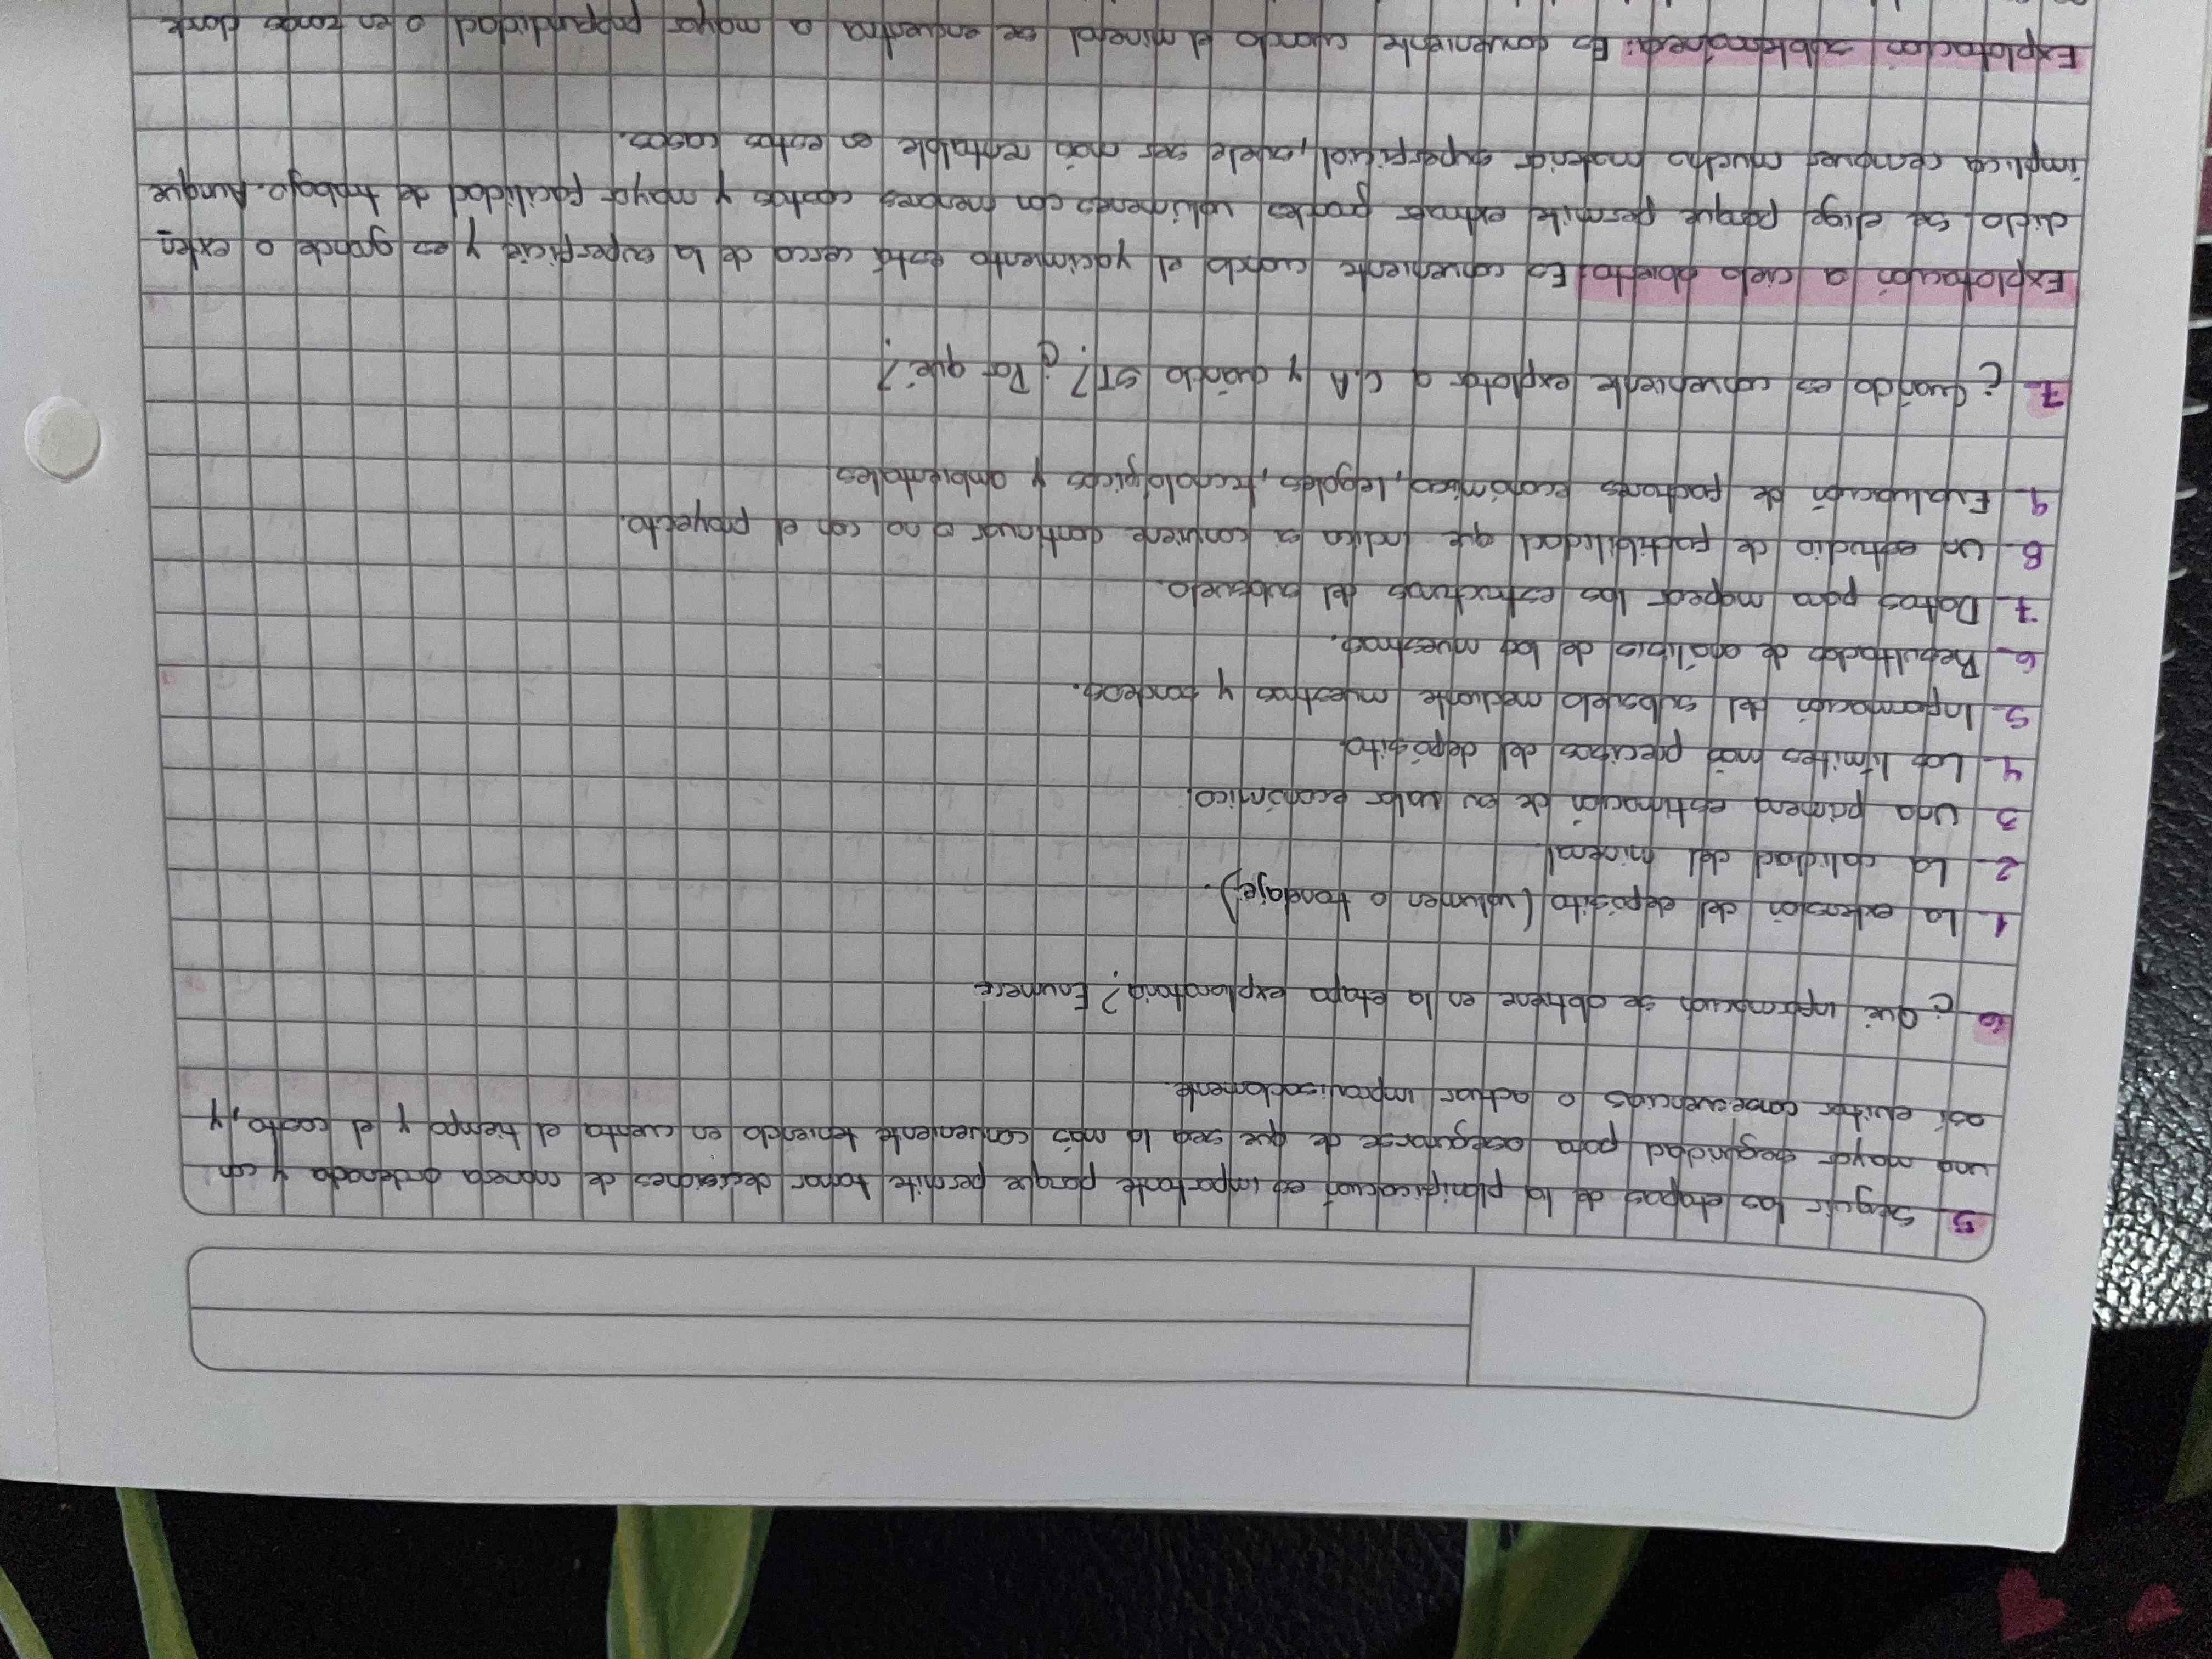 5- Seguir las etapas de la planificación es importante porque permite tomar decisiones de manera ordenada y con
una mayor seguridad para asegurarse de que sea la más conveniente teniendo en cuenta el tiempo y el costo, y
así evitar consecuencias o actuar improvisadamente.
6- ¿Qué información se obtiene en la etapa exploratoria? Enumere
1- La extensión del depósito (volumen o tonelaje).
2- La calidad del mineral.
3- Una primera estimación de su valor económico.
4- Los límites más precisos del depósito.
5- Información del subsuelo mediante muestras y sondeos.
6- Resultados de análisis de las muestras.
7- Datos para mapear las estructuras del subsuelo.
8- Un estudio de factibilidad que indica si conviene continuar o no con el proyecto.
9- Evaluación de factores económicos, legales, tecnológicos y ambientales
7- ¿Cuándo es conveniente explotar a C.A y cuándo ST? ¿Por qué?
Explotación a cielo abierto: Es conveniente cuando el yacimiento está cerca de la superficie y es grande o exten-
dido. Se elige porque permite extraer grandes volúmenes con menores costos y mayor facilidad de trabajo. Aunque
implica remover mucho material superficial, suele ser más rentable en estos casos.
Explotación subterránea: Es conveniente cuando el mineral se encuentra a mayor profundidad o en zonas donde